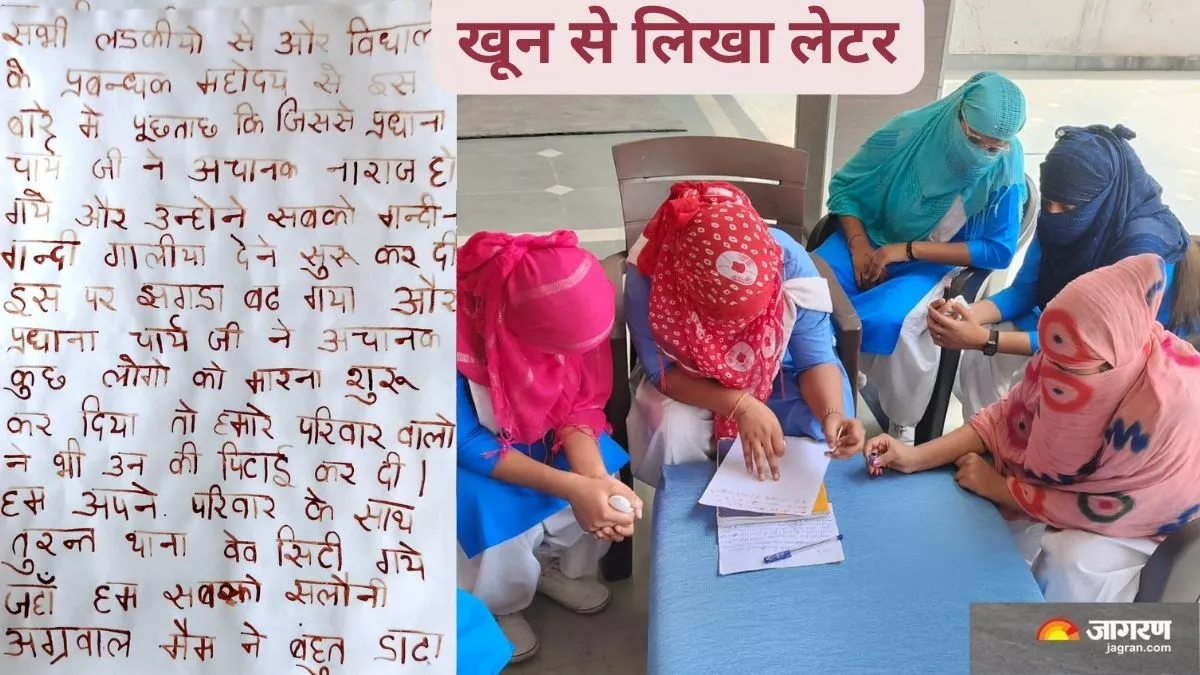 खून से लिखा लेटर
सभी लडकीयो से और विधाल
के प्रबन्धक महोदय से इस
बारे मे पूछताछ कि जिससे प्रधाना
चार्य जी ने अचानक नाराज हो
गये और उन्होने सबको गन्दी-
गन्दी गालीया देने सुरू कर दी
इस पर झगडा बढ गया और
प्रधाना चार्य जी ने अचानक
कुछ लोगो को मारना शुरू
कर दिया तो हमारे परिवार वालो
ने भी उन की पिटाई कर दी।
हम अपने. परिवार के साथ
तुरन्त थाना वेव सिटी गये
जहाँ हम सबको सलौनी
अग्रवाल मैम ने बहुत डाटा
जागरण
jagran.com